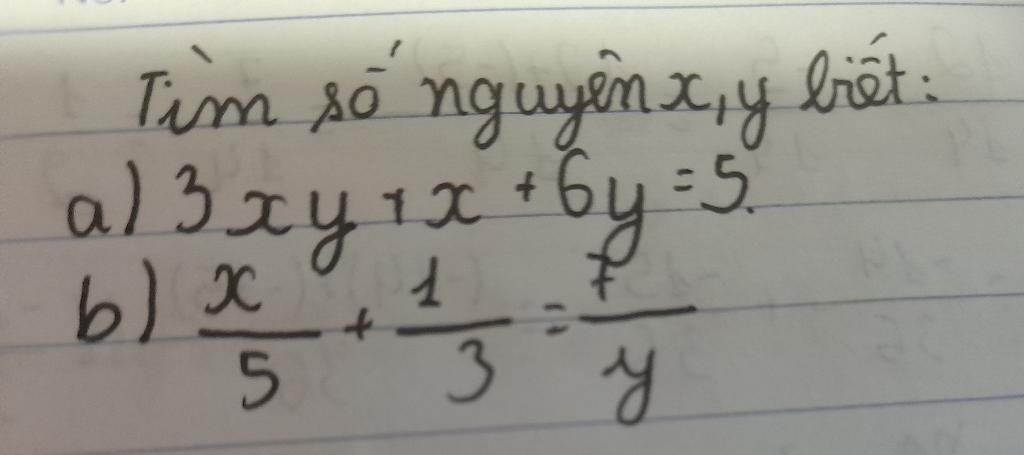 Tìm số nguyên x, y biết:
a) 3xy + x + 6y = 5.
b) x/5 + 1/3 = 7/y